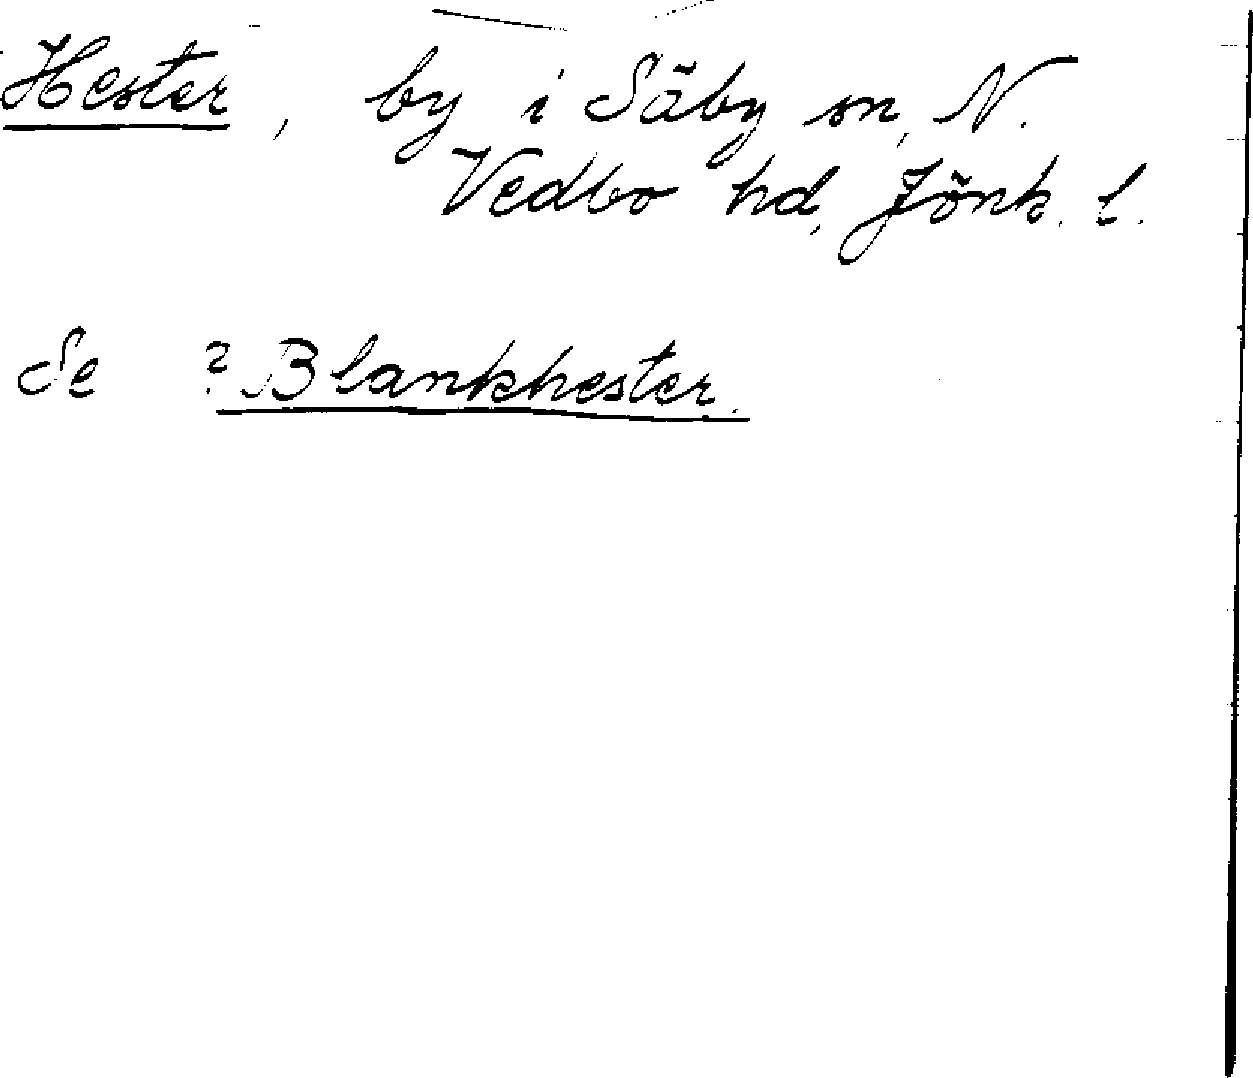 Hester, by i Säby sn, N.
Vedbo hd, Jönk. l.
Se ? Blankhester.